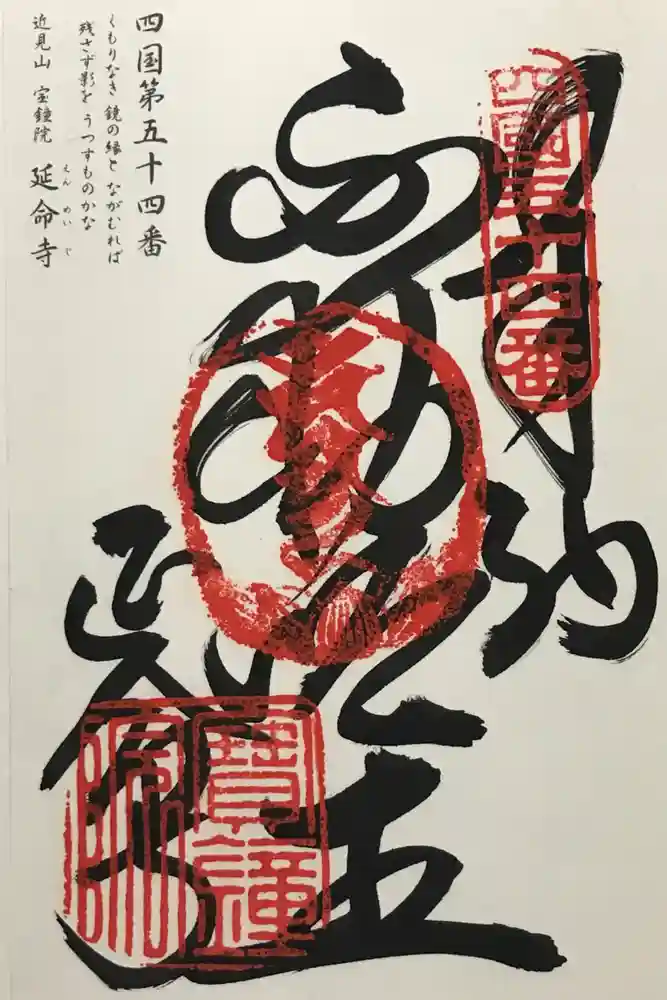 奉納
四國五十四番
不動明王
延命寺
寶鐘院
四国第五十四番
くもりなき 鏡の縁と ながむれば
残さず影を うつすものかな
近見山 宝鐘院 延命寺
えん めい じ